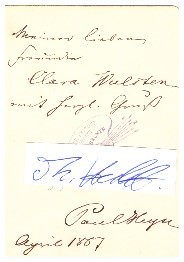 Meiner lieben
Freundin
Clara
mit herzl. Gruß
Th.
Paul Heyse
April 1867